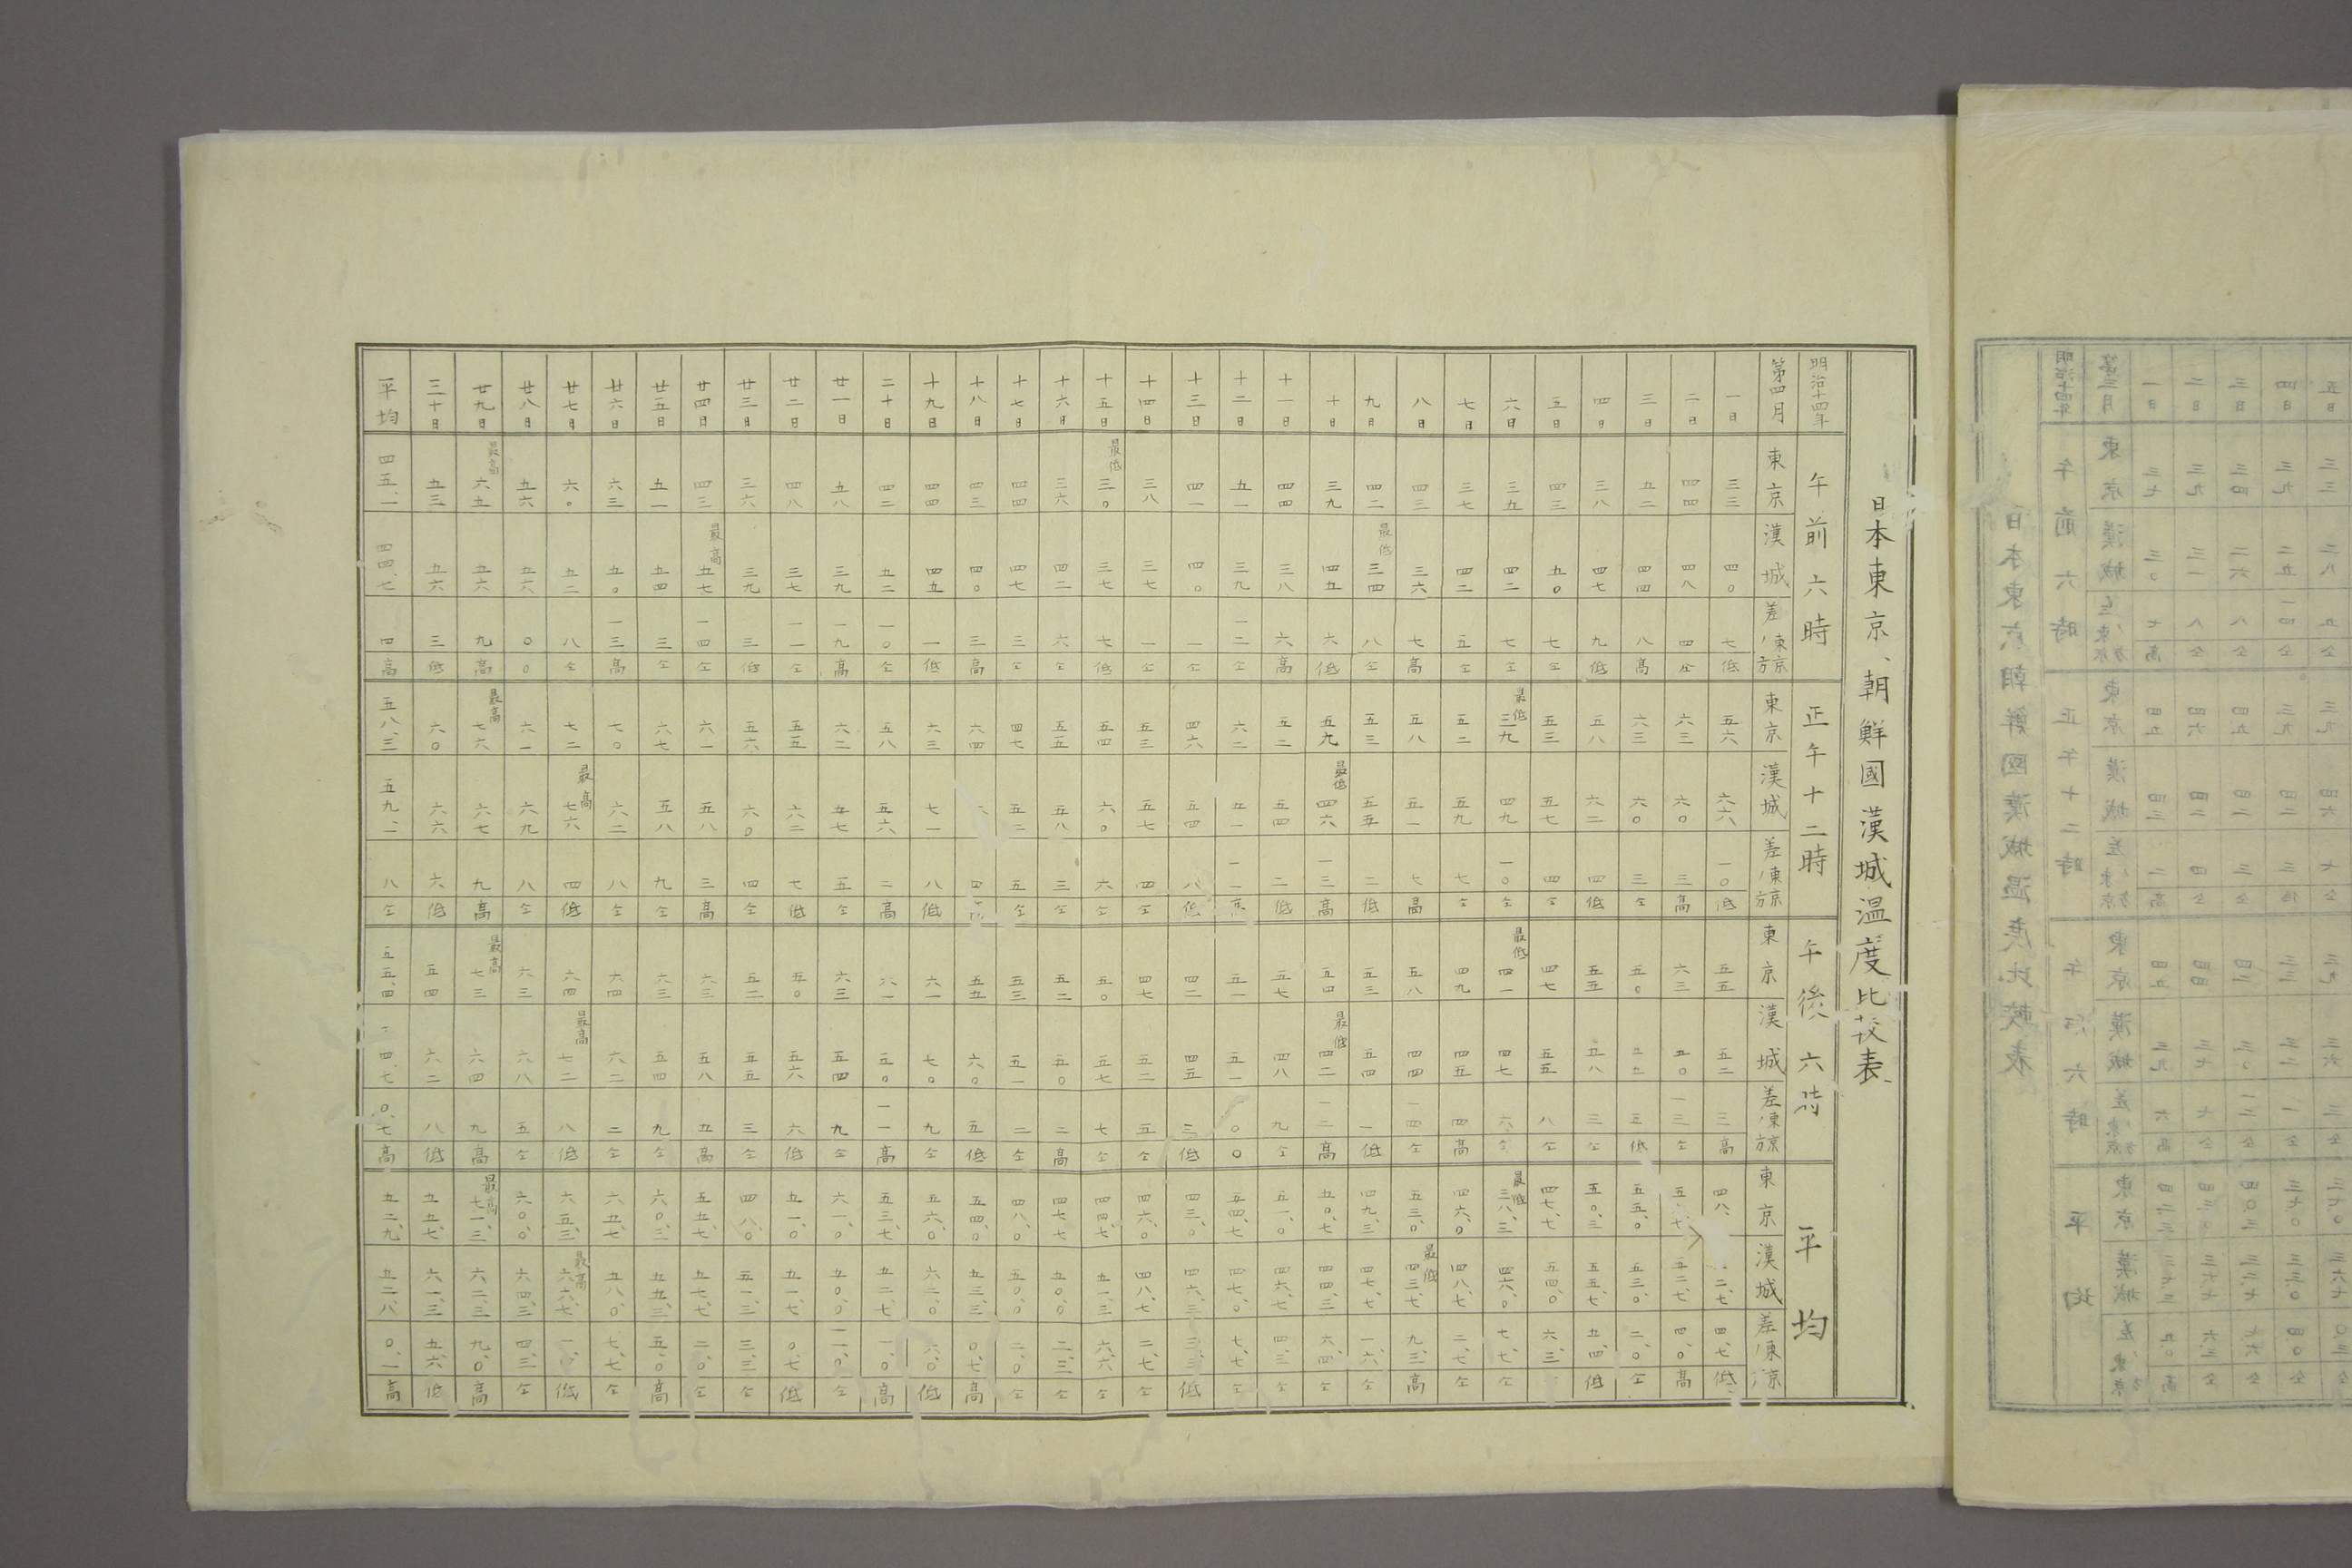 日本東京、朝鮮國漢城温度比较表
明治十四年 午前六時 正午十二時 午後六時 平均
第四月 東京 漢城 差ノ東京方 東京 漢城 差ノ東京方 東京 漢城 差ノ東京方 東京 漢城 差ノ東京方
一日 三三 四〇 七 低 五六 六六 一〇 低 五五 五二 三 高 四八、 二、七 四、七 低
二日 四四 四八 四 仝 六三 六〇 三 高 六三 五〇 一三 仝 五 七 五二、七 四、〇 高
三日 五二 四四 八 高 六三 六〇 三 仝 五〇 五 低 五五、〇 五三、〇 二、〇 仝
四日 三八 四七 九 低 五八 六二 四 低 五五 五八 三 仝 五〇、三 五五、七 五、四 低
五日 四三 五〇 七 仝 五三 五七 四 仝 四七 五五 八 仝 四七、七 五四、〇 六、三
六日 三五 四二 七 仝 最低 三九 四九 一〇 仝 最低 四一 四七 六 仝 最低 三八、三 四六、〇 七、七 仝
七日 三七 四二 五 仝 五二 五九 七 仝 四九 四五 四 高 四六、〇 四八、七 二、七 仝
八日 四三 三六 七 高 五八 五一 七 高 五八 四四 一四 仝 五三、〇 最低 四三、七 九、三 高
九日 四二 最低 三四 八 仝 五三 五五 二 低 五三 五四 一 低 四九、三 四七、七 一、六 仝
十日 三九 四五 六 低 五九 最低 四六 一三 高 五四 最低 四二 一二 高 五〇、七 四四、三 六、四 仝
十一日 四四 三八 六 高 五二 五四 二 低 五七 四八 九 仝 五一、〇 四六、七 四、三 仝
十二日 五一 三九 一二 仝 六二 五一 一一 高 五一 五一 〇 〇 五四、七 四七、〇 七、七 仝
十三日 四一 四〇 一 仝 四六 五四 八 低 四二 四五 三 低 四三、〇 四六、三 三、三 低
十四日 三八 三七 一 仝 五三 五七 四 仝 四七 五二 五 仝 四六、〇 四八、七 二、七 仝
十五日 最低 三〇 三七 七 低 五四 六〇 六 仝 五〇 五七 七 仝 四四、七 五一、三 六、六 仝
十六日 三六 四二 六 仝 五五 五八 三 仝 五二 五〇 二 高 四七、七 五〇、〇 二、三 仝
十七日 四四 四七 三 仝 四七 五二 五 仝 五三 五一 二 仝 四八、〇 五〇、〇 二、〇 仝
十八日 四三 四〇 三 高 六四 四 高 五五 六〇 五 低 五四、〇 五三、三 〇、七 高
十九日 四四 四五 一 低 六三 七一 八 低 六一 七〇 九 仝 五六、〇 六二、〇 六、〇 低
二十日 四二 五二 一〇 仝 五八 五六 二 高 六一 五〇 一一 高 五三、七 五二、七 一、〇 高
廿一日 五八 三九 一九 高 六二 五七 五 仝 六三 五四 九 仝 六一、〇 五〇、〇 一一、〇 仝
廿二日 四八 三七 一一 仝 五五 六二 七 低 五〇 五六 六 低 五一、〇 五一、七 〇、七 低
廿三日 三六 三九 三 低 五六 六〇 四 仝 五二 五五 三 仝 四八、〇 五一、三 三、三 仝
廿四日 四三 最高 五七 一四 仝 六一 五八 三 高 六三 五八 五 高 五五、七 五七、七 二、〇 仝
廿五日 五一 五四 三 仝 六七 五八 九 仝 六三 五四 九 仝 六〇、三 五五、三 五、〇 高
廿六日 六三 五〇 一三 高 七〇 六二 八 仝 六四 六二 二 仝 六五、七 五八、〇 七、七 仝
廿七日 六〇 五二 八 仝 七二 最高 七六 四 低 六四 最高 七二 八 低 六五、三 最高 六六、七 一、 低
廿八日 五六 五六 〇 〇 六一 六九 八 仝 六三 六八 五 仝 六〇、〇 六四、三 四、三 仝
廿九日 最高 六五 五六 九 高 最高 七六 六七 九 高 最高 七三 六四 九 高 最高 七一、三 六二、三 九、〇 高
三十日 五三 五六 三 低 六〇 六六 六 低 五四 六二 八 低 五五、七 六一、三 五、六 低
平均 四五、一 四四、七 四 高 五八、三 五九、一 八 仝 五五、四 四、七 〇、七 高 五二、九 五二、八 〇、一 高